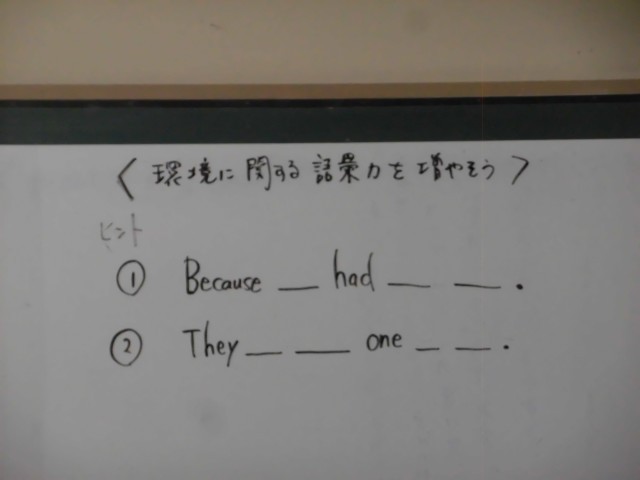 〈環境に関する語彙力を増やそう〉
ヒント
① Because _ had _ _.
② They _ _ one _ _.